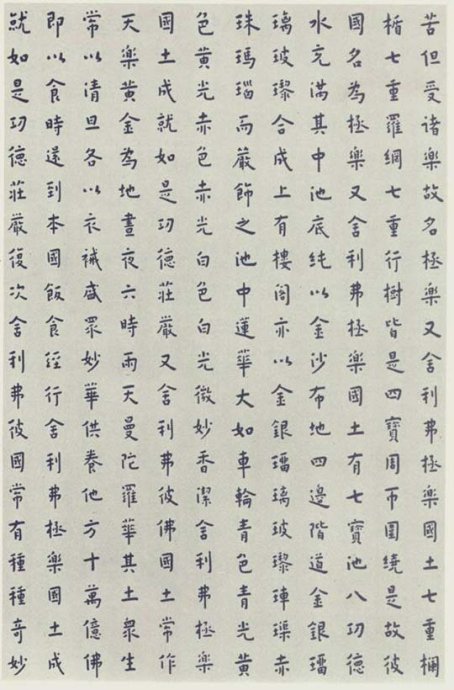 苦但受諸樂故名極樂又舍利弗極樂國土七重欄
楯七重羅網七重行樹皆是四寶周帀圍繞是故彼
國名為極樂又舍利弗極樂國土有七寶池八功德
水充滿其中池底純以金沙布地四邊階道金銀瑠
璃玻瓈合成上有樓閣亦以金銀瑠璃玻瓈硨磲赤
珠瑪瑙而嚴飾之池中蓮華大如車輪青色青光黃
色黃光赤色赤光白色白光微妙香潔舍利弗極樂
國土成就如是功德莊嚴又舍利弗彼佛國土常作
天樂黃金為地晝夜六時雨天曼陀羅華其土眾生
常以清旦各以衣祴盛眾妙華供養他方十萬億佛
即以食時還到本國飯食經行舍利弗極樂國土成
就如是功德莊嚴復次舍利弗彼國常有種種奇妙